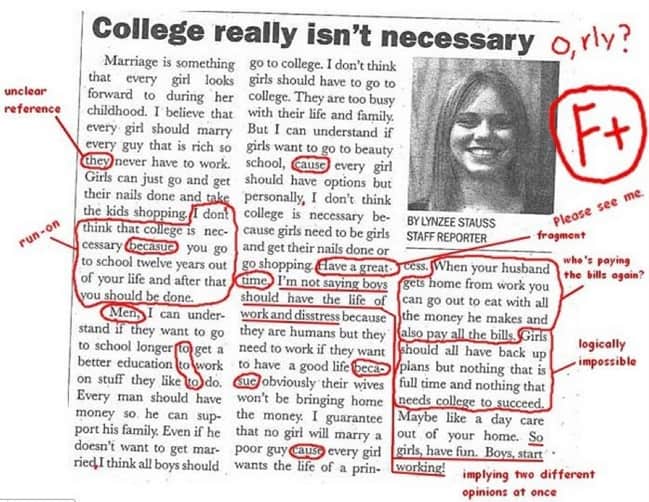 College really isn't necessary
o, rly?
F+
Please see me.
BY LYNZEE STAUSS
STAFF REPORTER
unclear
reference
run-on
Marriage is something
that every girl looks
forward to during her
childhood. I believe that
every girl should marry
every guy that is rich so
they never have to work.
Girls can just go and get
their nails done and take
the kids shopping. I dont
think that college is nec-
cessary becasue you go
to school twelve years out
of your life and after that
you should be done.
Men, I can under-
stand if they want to go
to school longer to get a
better education to work
on stuff they like to do.
Every man should have
money so he can sup-
port his family. Even if he
doesn't want to get mar-
ried, I think all boys should
go to college. I don't think
girls should have to go to
college. They are too busy
with their life and family.
But I can understand if
girls want to go to beauty
school, cause every girl
should have options but
personally, I don't think
college is necessary be-
cause girls need to be girls
and get their nails done or
go shopping. Have a great
time I'm not saying boys
should have the life of
work and disstress because
they are humans but they
need to work if they want
to have a good life beca-
sue obviously their wives
won't be bringing home
the money. I guarantee
that no girl will marry a
poor guy cause every girl
wants the life of a prin-
cess. When your husband
gets home from work you
can go out to eat with all
the money he makes and
also pay all the bills. Girls
should all have back up
plans but nothing that is
full time and nothing that
needs college to succeed.
Maybe like a day care
out of your home. So
girls, have fun. Boys, start
working!
fragment
who's paying
the bills again?
logically
impossible
implying two different
opinions at once